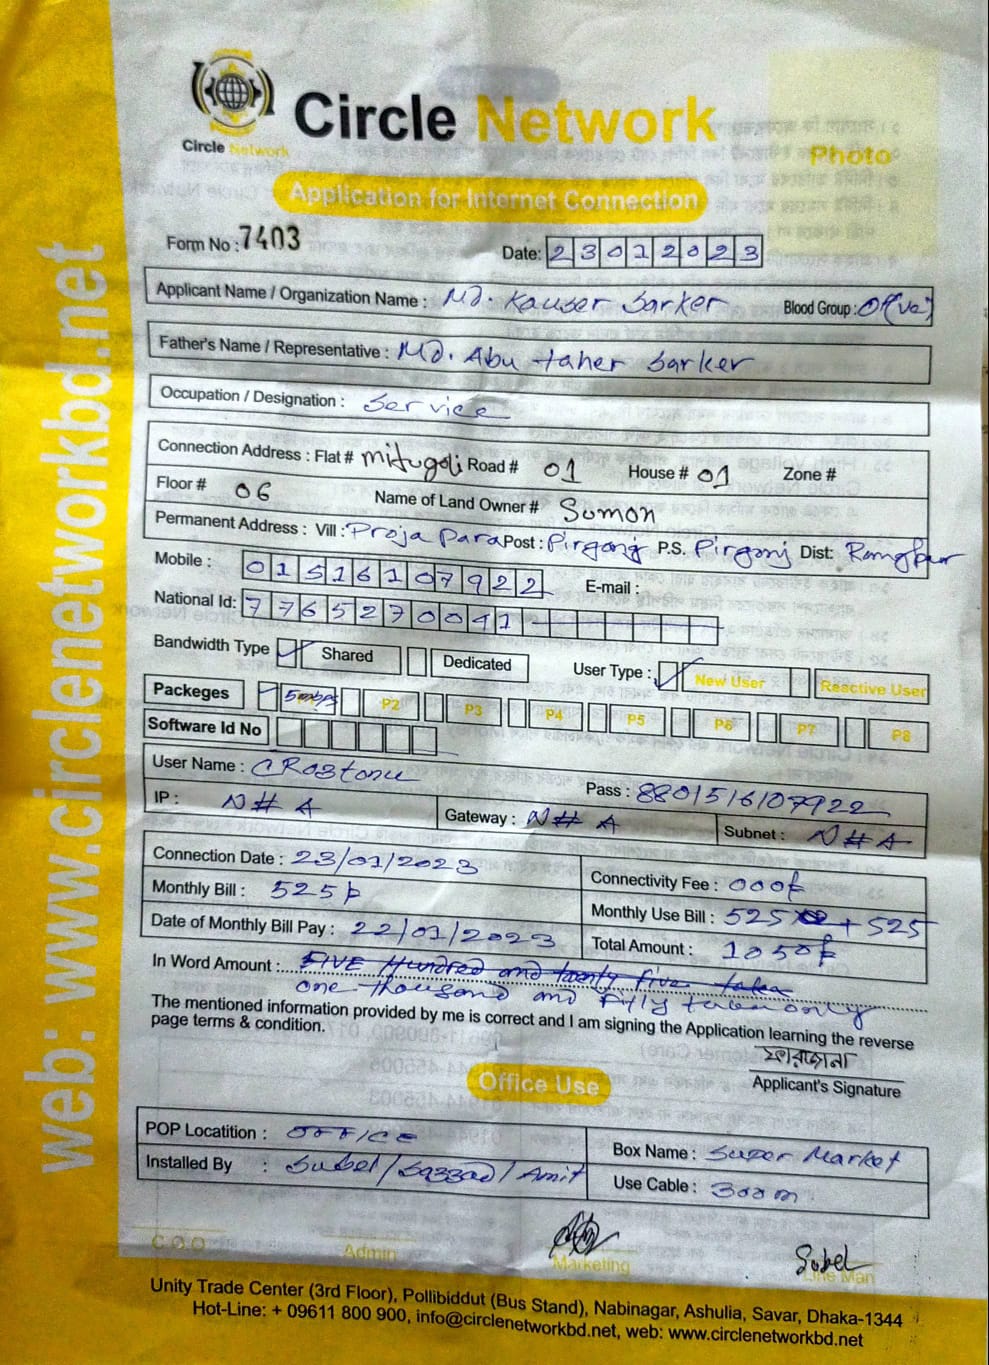 Circle Network
Circle Network
Photo
Application for Internet Connection
web: www.circlenetworkbd.net
Form No : 7403
Date: 23012023
Applicant Name / Organization Name : Md. Kauser Sarker Blood Group : O(+ve)
Father's Name / Representative : Md. Abu taher Sarker
Occupation / Designation : Service
Connection Address : Flat # Mitugoli Road # 01 House # 01 Zone #
Floor # 06 Name of Land Owner # Sumon
Permanent Address : Vill : Proja Para Post : Pirganj P.S. Pirganj Dist: Rangpur
Mobile : 01516107922 E-mail :
National Id: 7765270041
Bandwidth Type Shared Dedicated User Type : New User Reactive User
Packeges 5mbps P2 P3 P4 P5 P6 P7 P8
Software Id No
User Name : CRostonu Pass : 8801516107922
IP : N# A Gateway : N# A Subnet : N# A
Connection Date : 23/01/2023 Connectivity Fee : 000৳
Monthly Bill : 525৳ Monthly Use Bill : 525 + 525
Date of Monthly Bill Pay : 22/01/2023 Total Amount : 1050৳
In Word Amount : FIVE Hundred and twenty five taka
one thousand and fifty taka only
The mentioned information provided by me is correct and I am signing the Application learning the reverse
page terms & condition.
ফারজানা
Applicant's Signature
Office Use
POP Locatition : OFFICE Box Name : Super Market
Installed By : Subel/Sazzad/Amit Use Cable : 300m
Subel
C.O.O Admin Marketing Line Man
Unity Trade Center (3rd Floor), Pollibiddut (Bus Stand), Nabinagar, Ashulia, Savar, Dhaka-1344
Hot-Line: + 09611 800 900, info@circlenetworkbd.net, web: www.circlenetworkbd.net